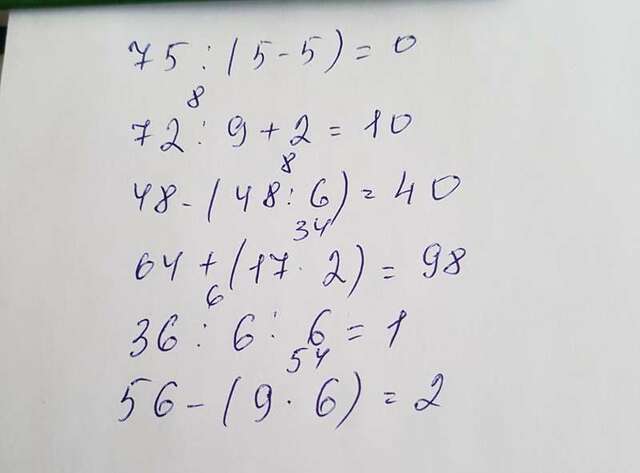 75 : (5 - 5) = 0
8
72 : 9 + 2 = 10
8
48 - (48 : 6) = 40
34
64 + (17 · 2) = 98
6
36 : 6 : 6 = 1
54
56 - (9 · 6) = 2